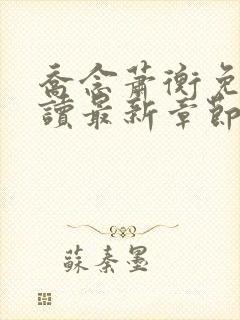 喬念蕭衡免
讀最新章節
蘇秦墨